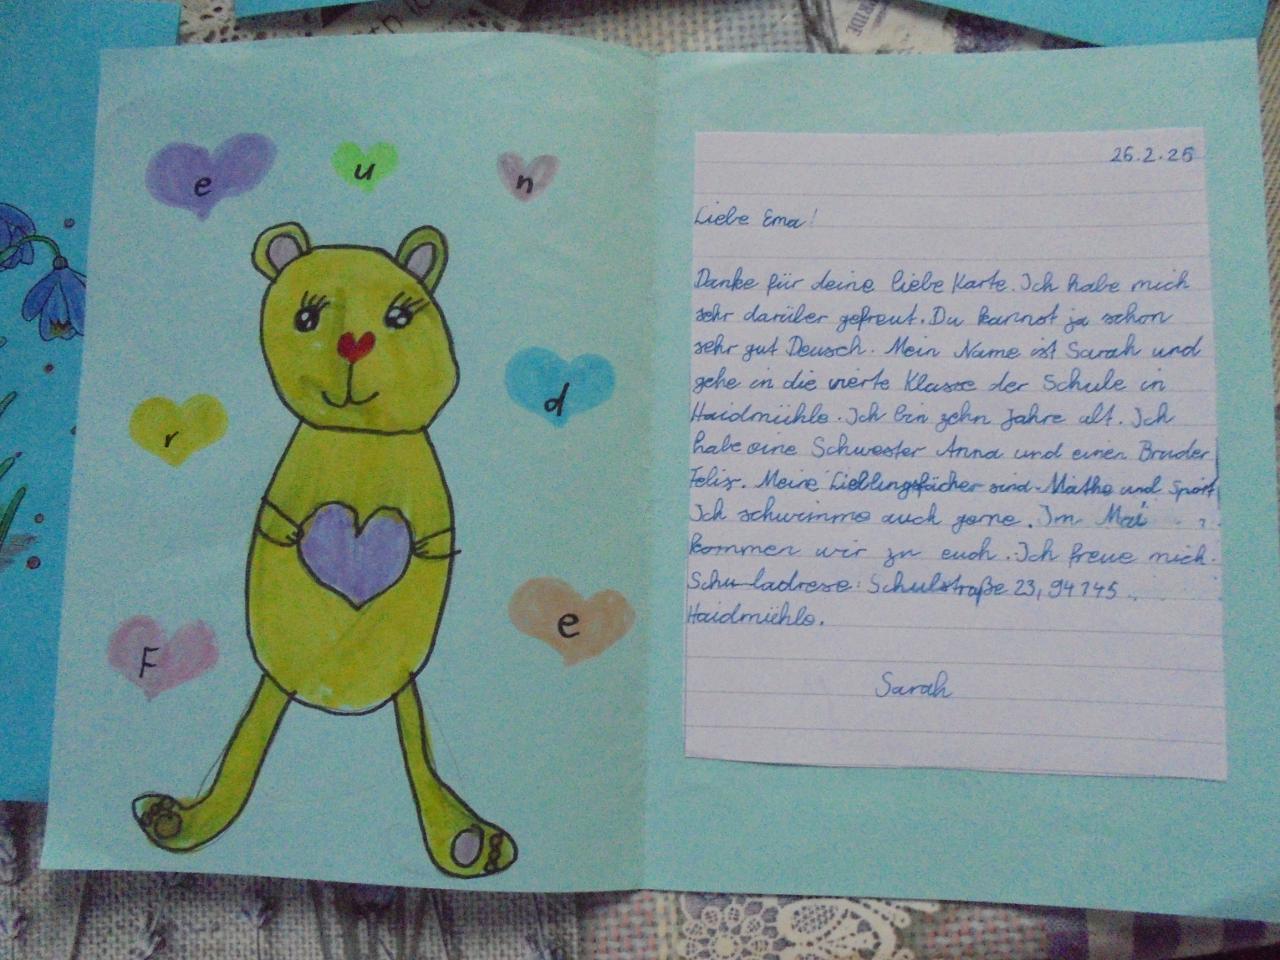 F
r
e
u
n
d
e
26.2.25
Liebe Ema!
Danke für deine liebe Karte. Ich habe mich
sehr darüber gefreut. Du kannst ja schon
sehr gut Deusch. Mein Name ist Sarah und
gehe in die vierte Klasse der Schule in
Haidmühle. Ich bin zehn Jahre alt. Ich
habe eine Schwester Anna und einen Bruder
Felix. Meine Lieblingsfächer sind Mathe und Sport
Ich schwimme auch gerne. Im Mai
kommen wir zu euch. Ich freue mich.
Schu ladrese: Schulstraße 23, 94145
Haidmühle.
Sarah